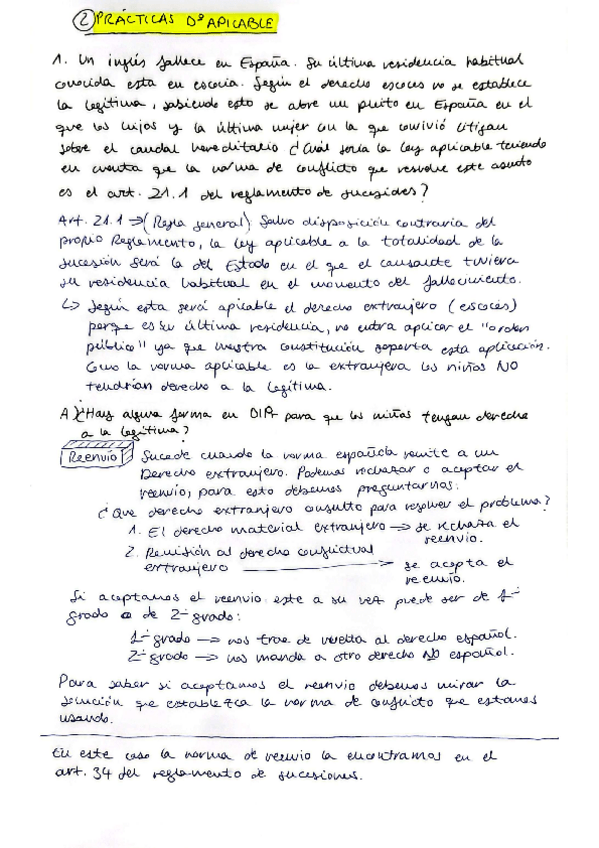 ② PRÁCTICAS Dº APICABLE
1. Un inglés fallece en España. Su última residencia habitual
conocida esta en escocia. Según el derecho escoces no se establece
la legítima, sabiendo esto se abre un pleito en España en el
que los hijos y la última mujer con la que convivió litigan
sobre el caudal hereditario ¿Cuál sería la ley aplicable teniendo
en cuenta que la norma de conflicto que resuelve este asunto
es el art. 21.1 del reglamento de sucesiones?
Art. 21.1 → (Regla general) Salvo disposición contraria del
propio Reglamento, la ley aplicable a la totalidad de la
sucesión será la del Estado en el que el causante tuviera
su residencia habitual en el momento del fallecimiento.
↳ Según esta será aplicable el derecho extranjero (escocés)
porque es su última residencia, no entra aplicar el "orden
público" ya que nuestra constitución soporta esta aplicación.
Como la norma aplicable es la extranjera los niños NO
tendrían derecho a la legítima.
A) ¿Hay alguna forma en DIPr para que los niños tengan derecho
a la legítima?
Reenvío Sucede cuando la norma española remite a un
Derecho extranjero. Podemos rechazar o aceptar el
reenvío, para esto debemos preguntarnos:
¿Que derecho extranjero consulto para resolver el problema?
1. El derecho material extranjero → se rechaza el
reenvio.
2. Remisión al derecho conflictual
extranjero → se acepta el
reenvio.
Si aceptamos el reenvio este a su vez puede ser de 1º
grado o de 2º grado:
1º grado → nos trae de vuelta al derecho español.
2º grado → nos manda a otro derecho NO español.
Para saber si aceptamos el reenvio debemos mirar la
solución que establezca la norma de conflicto que estamos
usando.
En este caso la norma de reenvio la encontramos en el
art. 34 del reglamento de sucesiones.